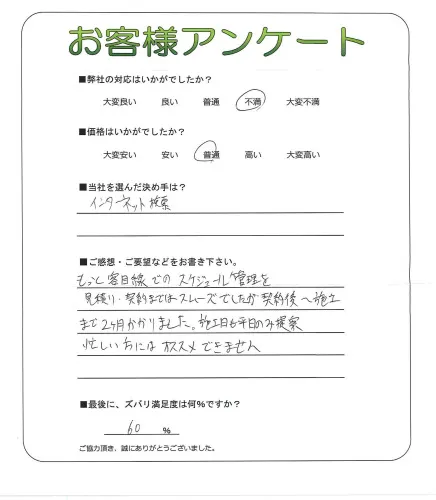 お客様アンケート
■弊社の対応はいかがでしたか？
大変良い 良い 普通 不満 大変不満
■価格はいかがでしたか？
大変安い 安い 普通 高い 大変高い
■当社を選んだ決め手は？
インターネット検索
■ご感想・ご要望などをお書き下さい。
もっと客目線でのスケジュール管理を
見積り・契約まではスムーズでしたが契約後〜施工
まで2ヶ月かかりました。施工日も平日のみ提案
忙しい方にはオススメできません
■最後に、ズバリ満足度は何%ですか？
60 %
ご協力頂き、誠にありがとうございました。